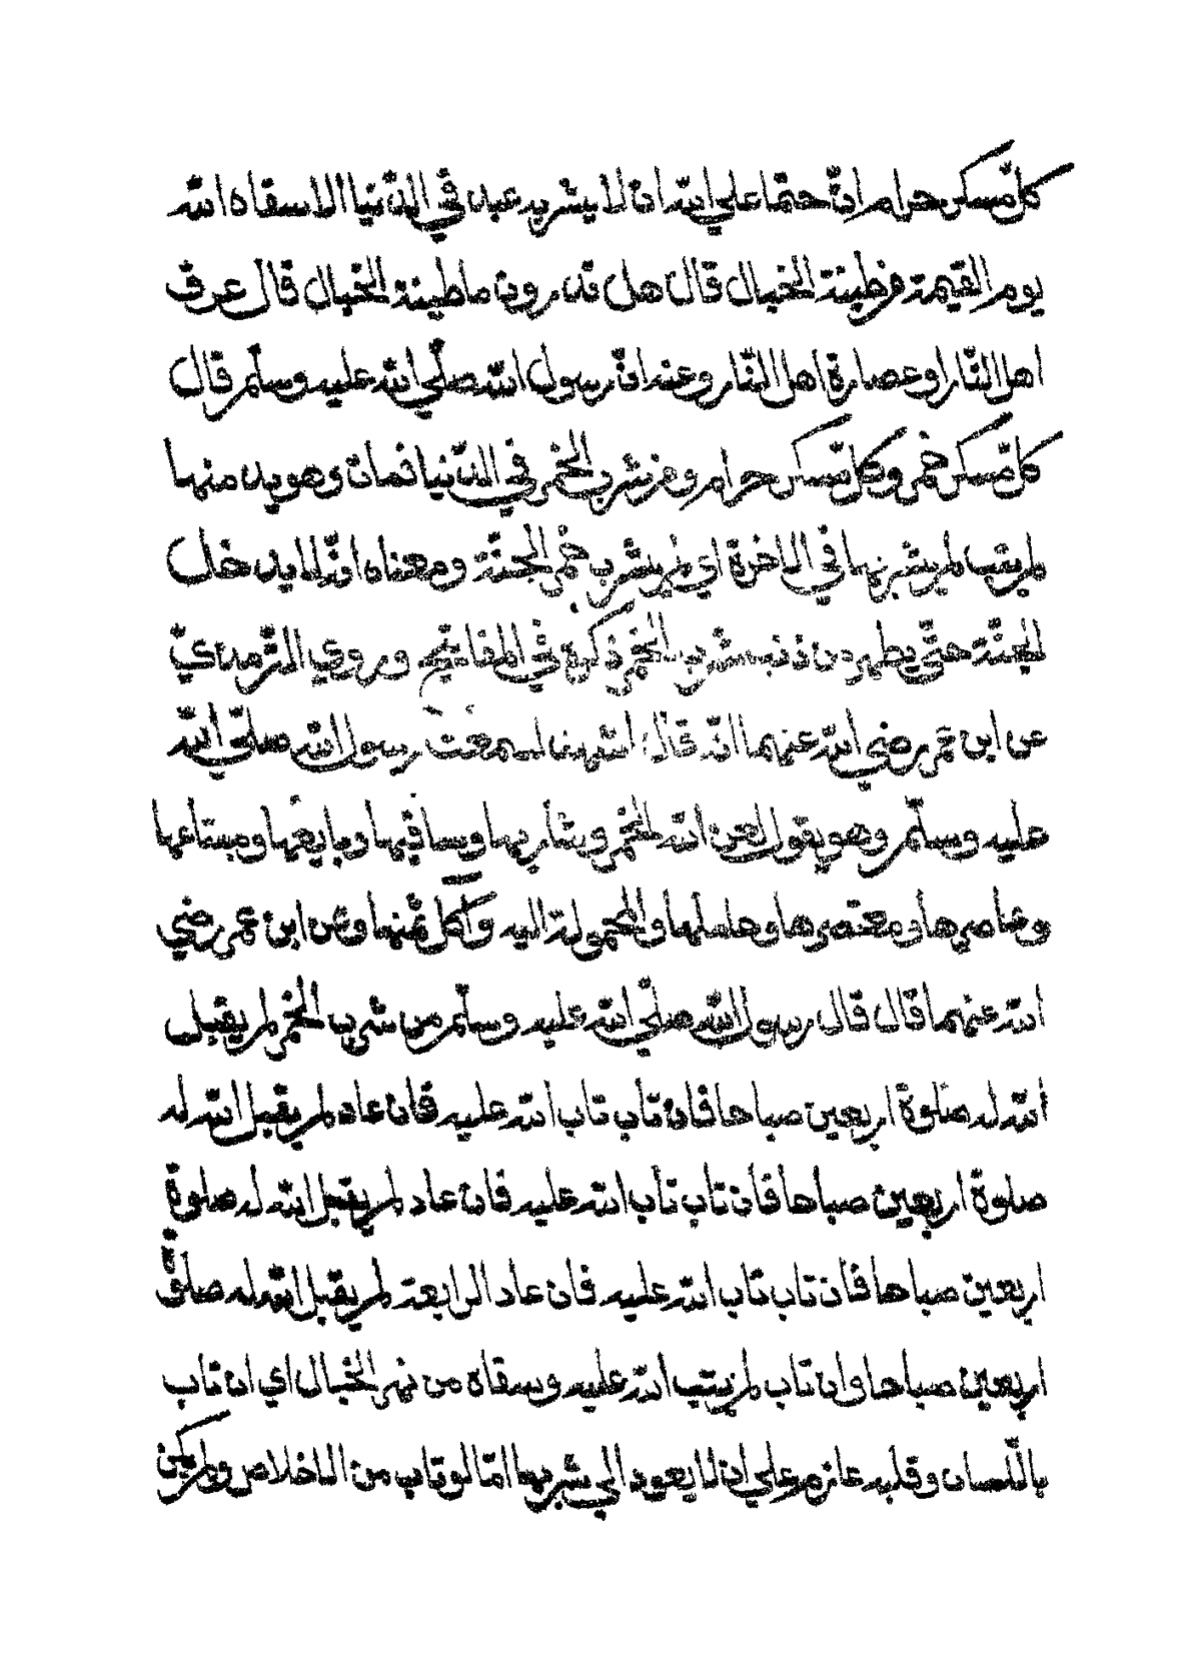 كلّ مسكر حرام انّ حتما علي الله ان لا يشربه عبد في الدّنيا الا سقاه الله
يوم القيمة من طينة الخبال قال هل تدرون ما طينة الخبال قال عرق
اهل النّار او عصارة اهل النّار وعنه انّ رسول الله صلّي الله عليه وسلّم قال
كلّ مسكر خمر وكلّ مسكر حرام ومن شرب الخمر في الدّنيا فمات وهو يدمنها
لم يتب لم يشربها في الاخرة اي لم يشرب خمر الجنّة ومعناه انّه لا يدخل
الجنّة حتّي يطهر من ذنب شرب الخمر ذكره في المفاتيح وروي التّرمذيّ
عن ابن عمر رضي الله عنهما انّه قال اشهد لسمعت رسول الله صلّي الله
عليه وسلّم وهو يقول لعن الله الخمر وشاربها وساقيها وبايعها ومبتاعها
وعاصرها ومعتصرها وحاملها والمحمولة اليه وآكل ثمنها وعن ابن عمر رضي
الله عنهما قال قال رسول الله صلّي الله عليه وسلّم من شرب الخمر لم يقبل
الله له صلوة اربعين صباحا فان تاب تاب الله عليه فان عاد لم يقبل الله له
صلوة اربعين صباحا فان تاب تاب الله عليه فان عاد لم يقبل الله له صلوة
اربعين صباحا فان تاب تاب الله عليه فان عاد الرابعة لم يقبل الله له صلوة
اربعين صباحا وان تاب لم يتب الله عليه وسقاه من نهر الخبال اي ان تاب
باللّسان وقلبه عازم علي ان لا يعود الي شربها امّا لو تاب من الاخلاص ولم يكن